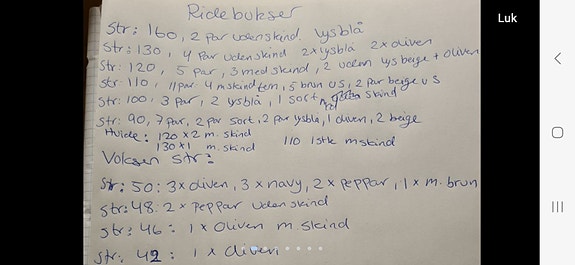 Luk
Ridebukser
Str: 160, 2 par uden skind. lysblå
Str: 130, 4 Par uden skind 2x lysblå 2x oliven
Str: 120, 5 par, 3 med skind, 2 uden lys beige + oliven
Str: 110, 11 par 4 m skind fem, 5 brun US, 2 par beige US
Str: 100, 3 par, 2 lysblå, 1 sort skind
Str: 90, 7 par, 2 par sort, 2 par lysblå, 1 oliven, 2 beige
Hvide: 120 x 2 m. skind
130 x 1 m. skind 110 1 stk m skind
Voksen str:
Str: 50: 3x oliven, 3 x navy, 2 x peppar, 1 x m. brun
str: 48. 2 x Peppar uden skind
str: 46: 1 x Oliven m. skind
str: 42: 1 x oliven